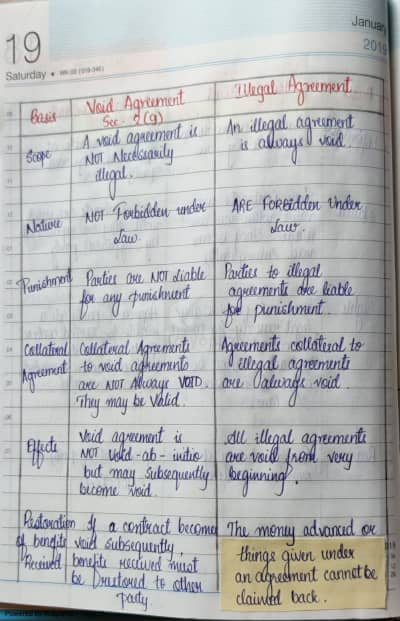 19
January
2019
Saturday • WK 03 (019-346)
Basis
Void Agreement
Sec. 2(g)
Illegal Agreement
Scope
A void agreement is
NOT Necessarily
illegal.
An illegal agreement
is always void
Nature
NOT Forbidden under
law.
ARE FORBIDDEN Under
law.
Punishment
Parties are NOT liable
for any punishment
Parties to illegal
agreements are liable
for punishment.
Collateral
Agreement
Collateral Agreements
to void agreements
are NOT Always VOID.
They may be Valid.
Agreements collateral to
illegal agreements
are always void
Effects
Void agreement is
NOT void-ab-initio
but may subsequently
become void.
All illegal agreements
are void from very
beginning.
Restoration
of benefits
Received
If a contract becomes
void subsequently,
benefits received must
be restored to other
party
The money advanced or
things given under
an agreement cannot be
claimed back.